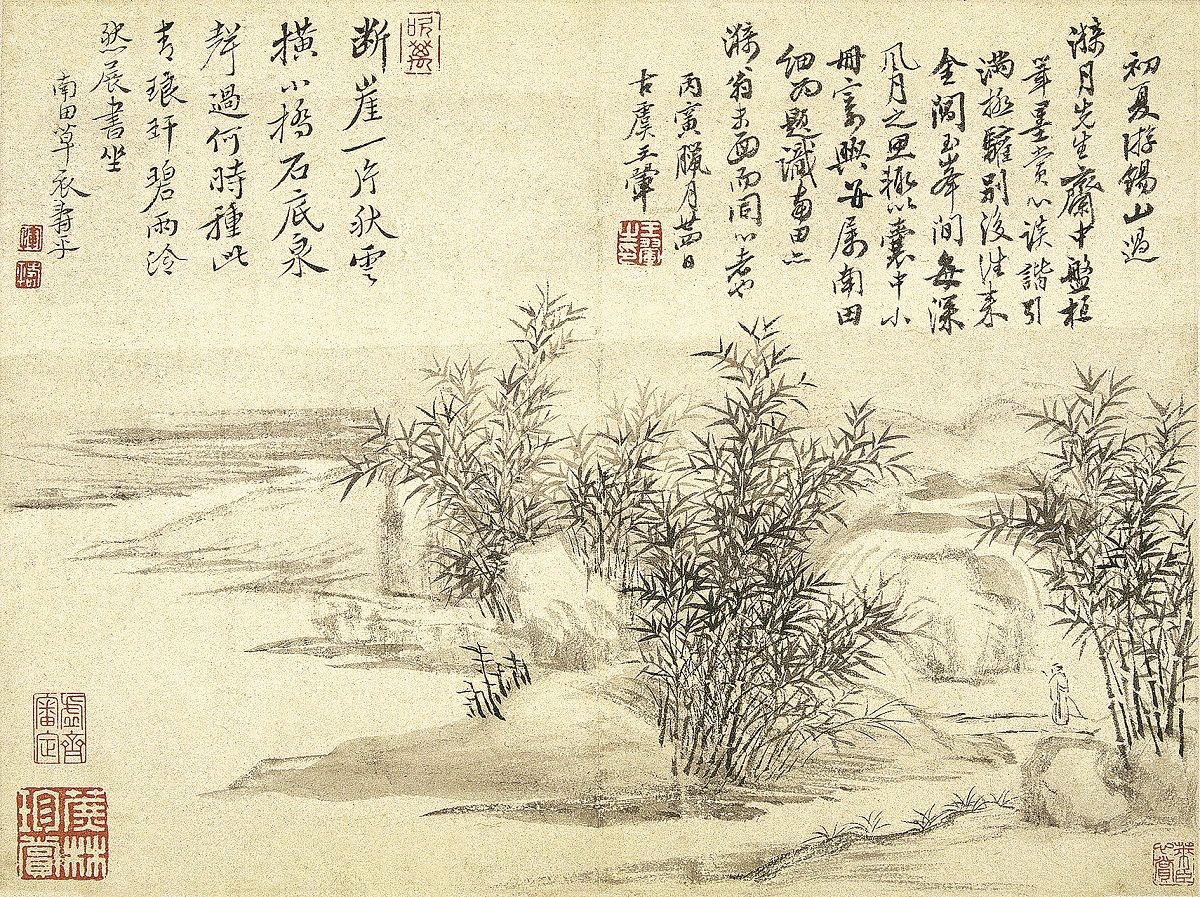 初夏游錫山過
滌月先生齋中盤桓
筆墨賞心談諧引
滿極驩別後往來
金閶玉峯間每深
風月之思輙以囊中小
冊寄興并属南田
細為題識南田
滌翁未面而同心者也
丙寅臘月廿四日
古虞王翬
王翬之印
断崖一片秋雲
横小橋石底泉
聲過何時種此
青琅玕碧雨泠
然展書坐
南田草衣壽平
虛齋審定
萊臣心賞